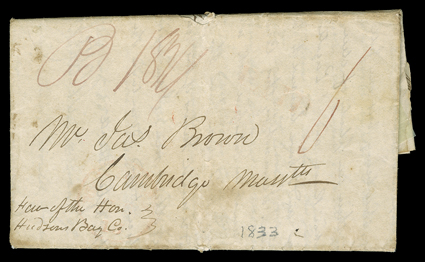 18¾
Mr. Jas. Brown
Cambridge Masstts
Fav. of the Hon.
Hudsons Bay Co.
1833